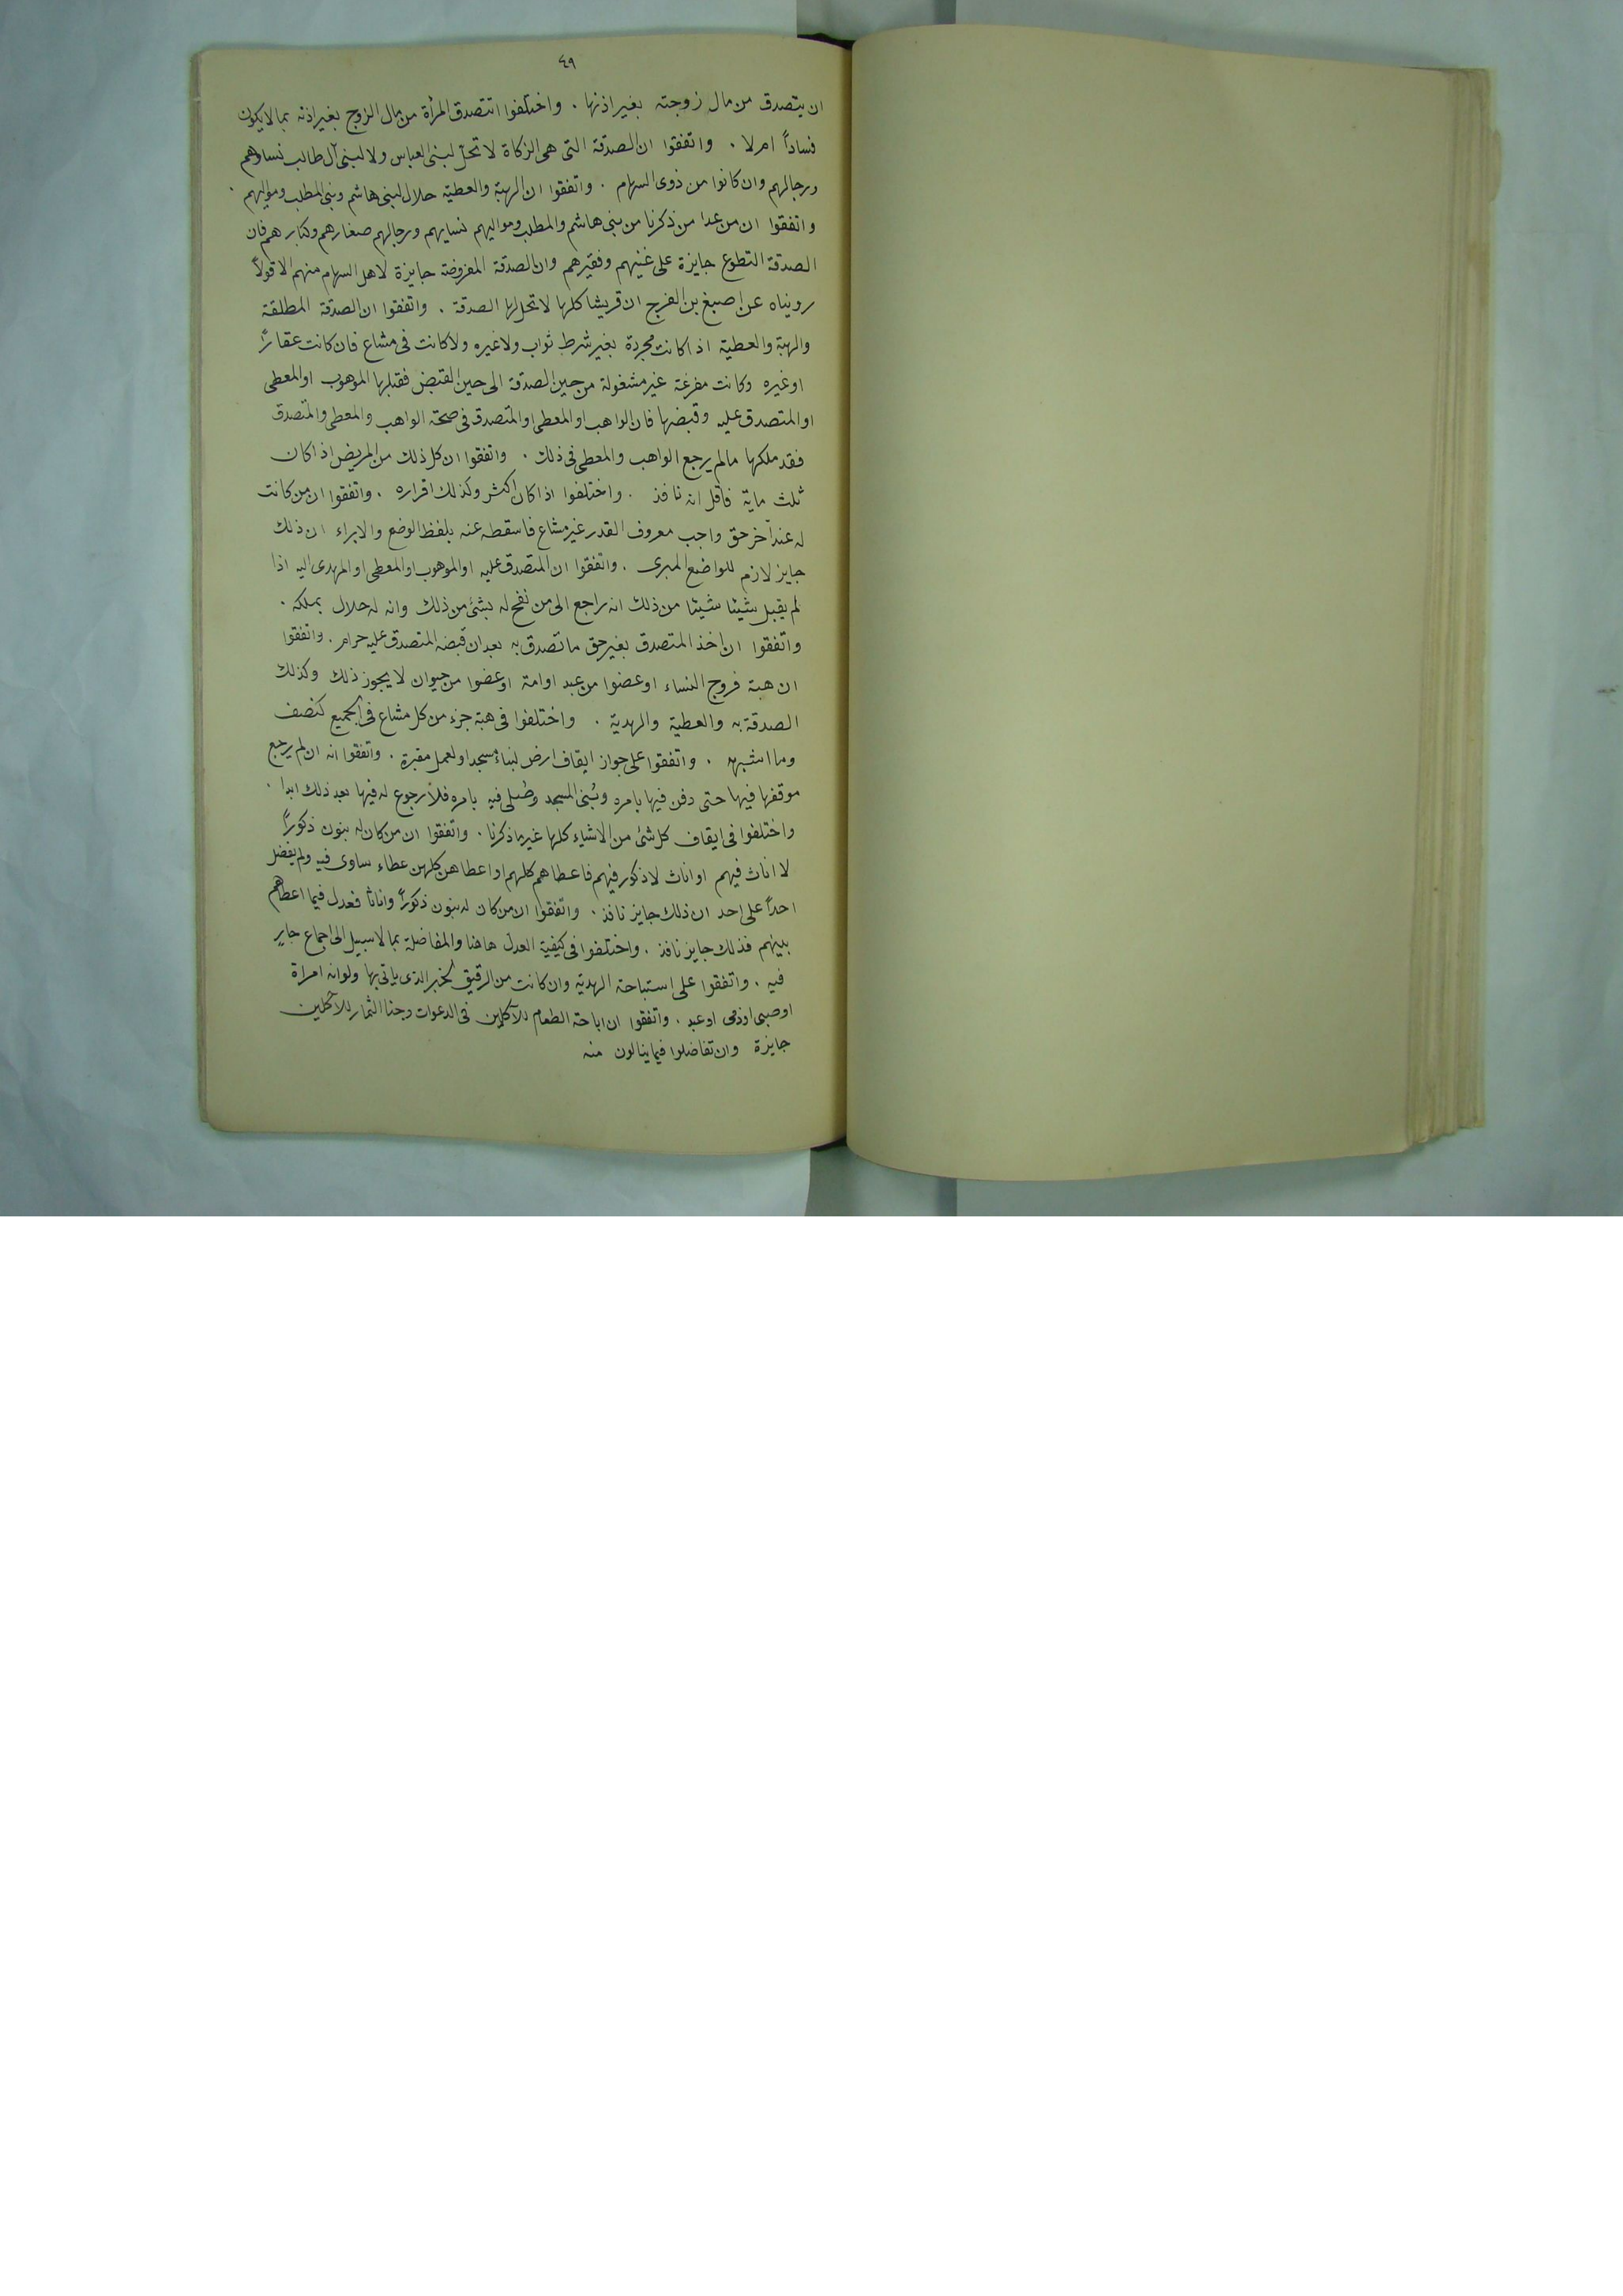 ٤٩
ان يتصدق من مال زوجته بغير اذنها . واختلفوا اتتصدق المرأة من مال الزوج بغير اذنه بما لا يكون
فساداً ام لا . واتفقوا ان الصدقة التى هى الزكاة لا تحل لبنى العباس ولا لبنى آل طالب نساوهم
ورجالهم وان كانوا من ذوى السهام . واتفقوا ان الهبة والعطية حلال لبنى هاشم وبنى المطلب ومواليهم .
واتفقوا ان من عدا من ذكرنا من بنى هاشم والمطلب ومواليهم نسايهم ورجالهم صغارهم وكبارهم فان
الصدقة التطوع جايزة على غنيهم وفقيرهم وان الصدقة المفروضة جايزة لاهل السهام منهم الا قولاً
رويناه عن اصبغ بن الفرج ان قريشا كلها لا تحل لها الصدقة . واتفقوا ان الصدقة المطلقة
والهبة والعطية اذا كانت مجردة بغير شرط ثواب ولا غيره ولا كانت فى مشاع فان كانت عقاراً
او غيره وكانت مفرغة غير مشغولة من حين الصدقة الى حين القبض فقبلها الموهوب او المعطى
او المتصدق عليه وقبضها فان الواهب او المعطى او المتصدق فى صحته الواهب والمعطى والمتصدق
فقد ملكها ما لم يرجع الواهب والمعطى فى ذلك . واتفقوا ان كل ذلك من المريض اذا كان
ثلث ماية فاقل انه نافذ . واختلفوا اذا كان اكثر وكذلك اقراره . واتفقوا ان من كانت
له عند آخر حق واجب معروف القدر غير مشاع فاسقطه عنه بلفظ الوضع والابراء ان ذلك
جايز لازم للواضع المبرى . واتفقوا ان المتصدق عليه او الموهوب او المعطى او المهدى اليه اذا
لم يقبل شيئا شيئا من ذلك انه راجع الى من نفح له بشئ من ذلك وانه له حلال بملكه .
واتفقوا ان اخذ المتصدق بغير حق ما تصدق به بعد ان قبضه المتصدق عليه حرام . واتفقوا
ان هبة فروج النساء او عضوا من عبد او امة او عضوا من حيوان لا يجوز ذلك وكذلك
الصدقة به والعطية والهدية . واختلفوا فى هبة جزء من كل مشاع فى الجميع كنصف
وما اشبهه . واتفقوا على جواز ايقاف ارض لبناء مسجد او لعمل مقبرة . واتفقوا انه ان لم يرجع
موقفها فيها حتى دفن فيها بامره وبُنى المسجد وصُلى فيه بامره فلا رجوع له فيها بعد ذلك ابدا .
واختلفوا فى ايقاف كل شئ من الاشياء كلها غير ما ذكرنا . واتفقوا ان من كان له بنون ذكوراً
لا اناث فيهم او اناث لا ذكور فيهم فاعطاهم كلهم او اعطاهن كلهن عطاء ساوى فيه ولم يفضل
احداً على احد ان ذلك جايز نافذ . واتفقوا ان من كان له بنون ذكوراً واناثا فعدل فيما اعطاهم
بينهم فذلك جايز نافذ . واختلفوا فى كيفية العدل هاهنا والمفاضلة بما لا سبيل الى اجماع جاير
فيه . واتفقوا على استباحة الهدية وان كانت من الرقيق لخبر الذى ياتى بها ولو انه امراة
او صبى او ذمى او عبد . واتفقوا ان اباحة الطعام للآكلين فى الدعوات وجنا الثمار للآكلين
جايزة وان تفاضلوا فيما ينالون منه